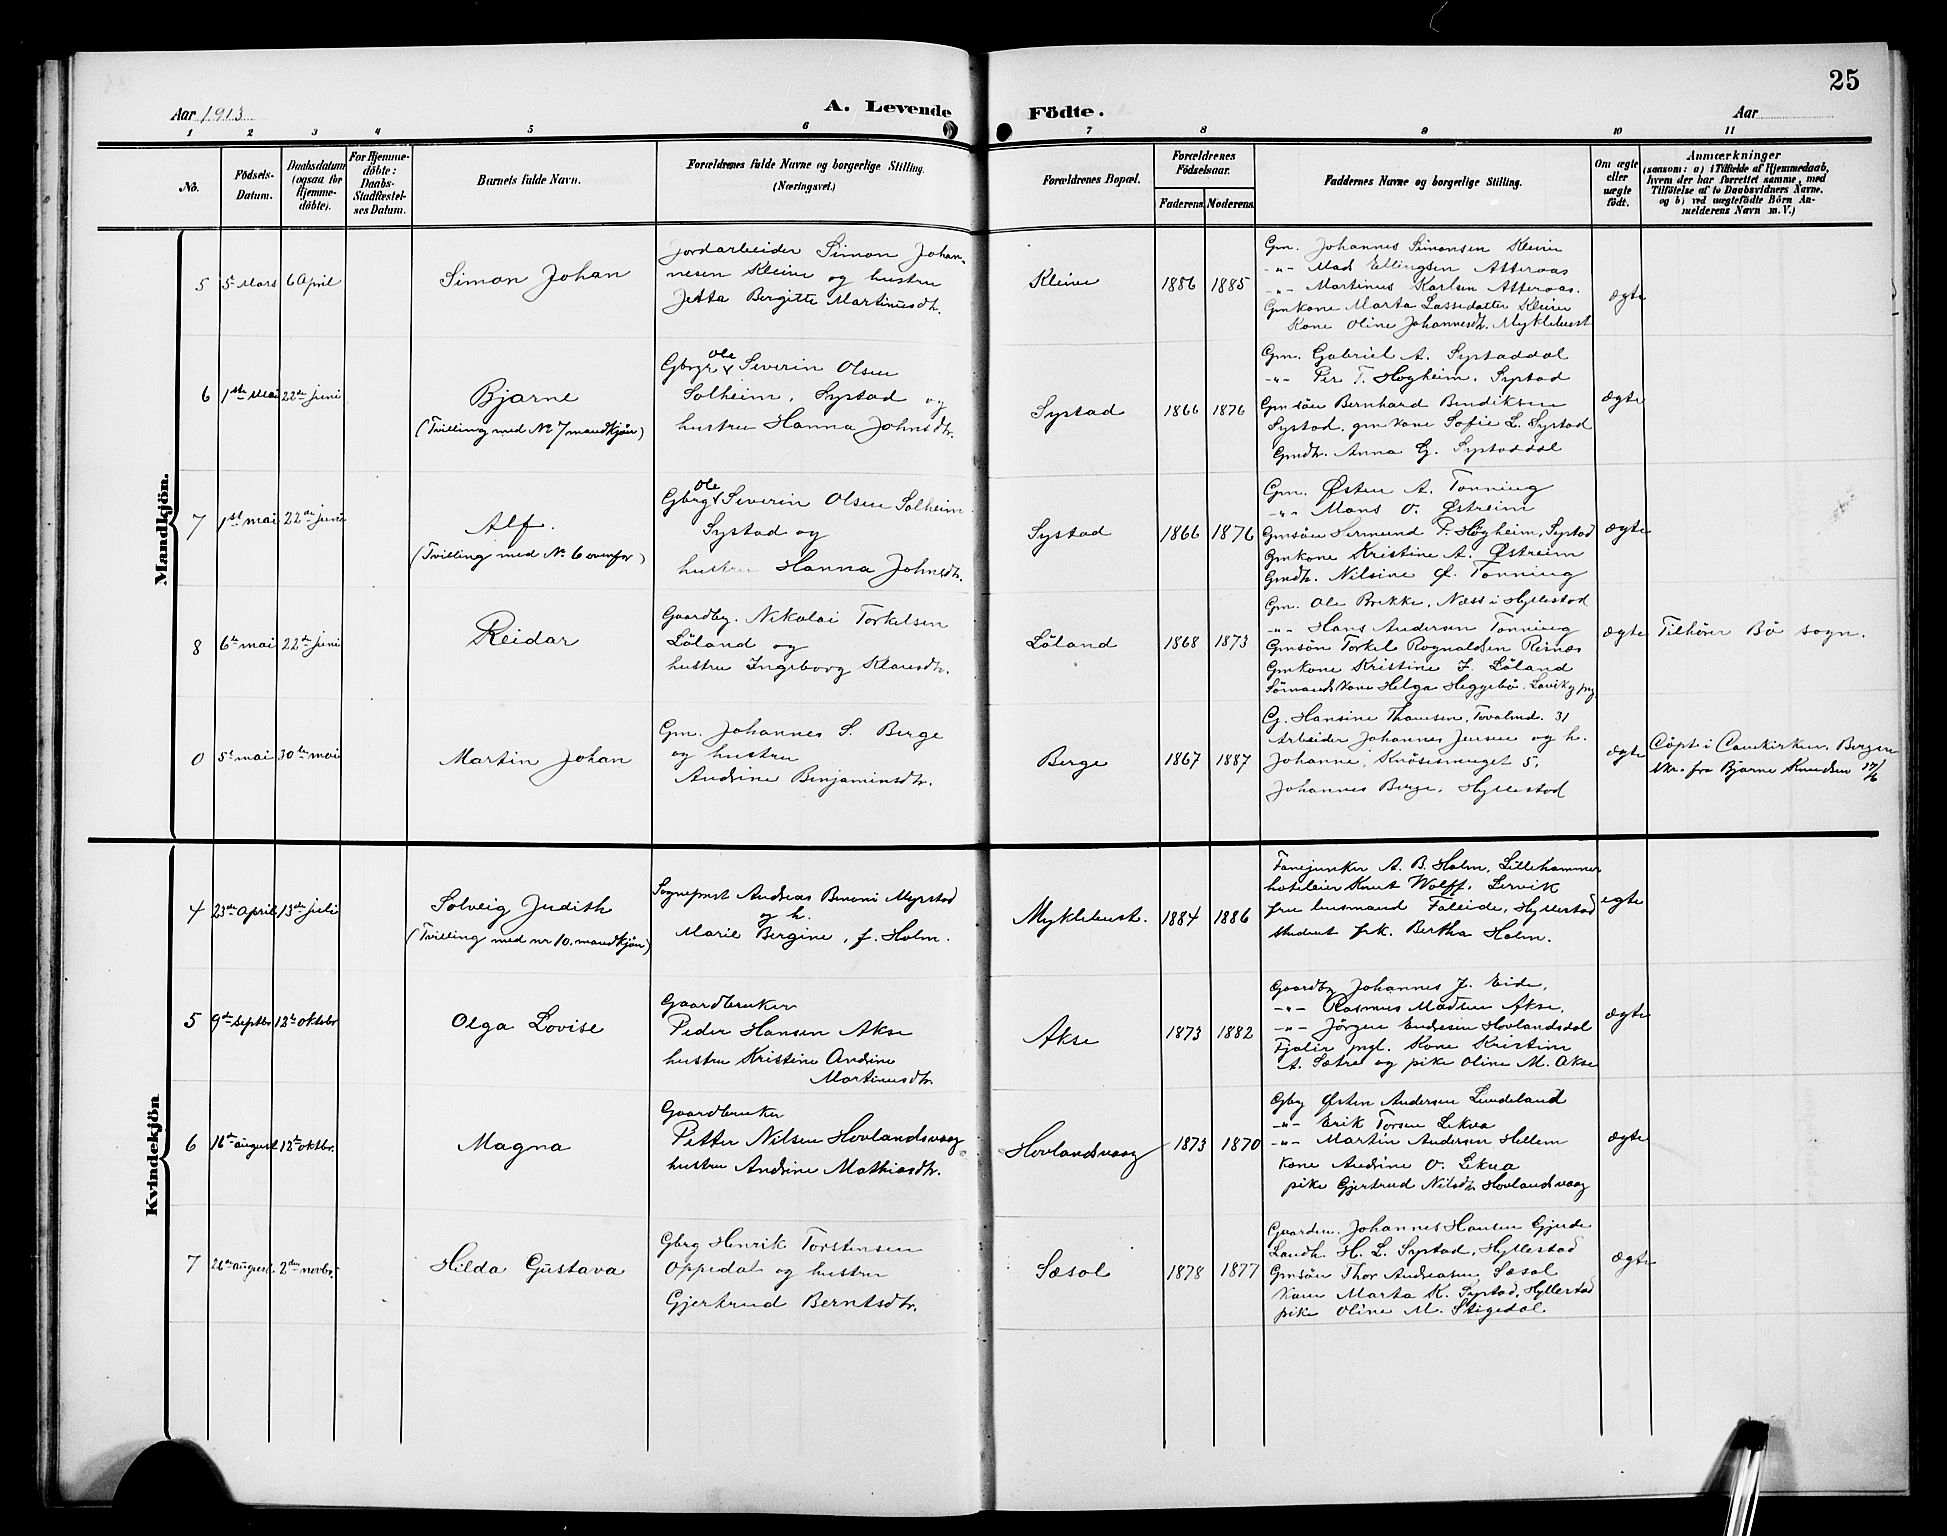 25
Aar 1913
A. Levende Födte.
Aar
1 2 3 4 5 6 7 8 9 10 11
No.
Födsels-Datum.
Daabsdatum (ogsaa for Hjemme-döbte).
For Hjemme-döbte: Daabs-Stadfæstel-ses Datum.
Barnets fulde Navn.
Forældrenes fulde Navne og borgerlige Stilling. (Næringsvei.)
Forældrenes Bopæl.
Forældrenes Födselsaar.
Faderens Moderens
Faddernes Navne og borgerlige Stilling.
Om ægte eller uægte födt.
Anmærkninger
(saasom: a) i Tilfælde af Hjemmedaab, hvem der har forrettet samme, med Tilföielse af to Daabsvidners Navne. og b) ved uægtefödte Börn An-melderens Navn m. V.)
Mandkjön.
5 5 Mars 6 April
Simon Johan
Jordarbeider Simon Johan-
nesen Kleive og hustru
Jetta Bergitte Martinusdtr.
Kleive
1886 1885
Gm. Johannes Simonsen Kleive
-"- Mads Ellingsen Atteraas
-"- Martinus Karlsen Atteraas.
Gmkone Marta Lassedatter Kleive
Kone Oline Johannesdtr. Myklebust
ægte
6 1ste Mai 22de juni
Bjarne
(Tvilling med No 7 mandkjön)
Gbrgr Ole Severin Olsen
Solheim, Systad og
hustru Hanna Johnsdtr.
Systad
1866 1876
Gm. Gabriel A. Systaddal
-"- Per T. Høgheim, Systad
Gmsön Bernhard Bendiksen
Systad, gmkone Sofie L. Systad
Gmdtr. Anna G. Systaddal
ægte
7 1ste mai 22de juni
Alf.
(Tvilling med No 6 ovenfor)
Gbrg Ole Severin Olsen Solheim
Systad og
hustru Hanna Johnsdtr.
Systad
1866 1876
Gm. Østen A. Tonning
-"- Mons O. Østreim
Gmsön Sermund P. Høgheim, Systad
Gmkone Kristine A. Østreim
Gmdtr. Nilsine Ø. Tonning
ægte
8 6te mai 22de juni
Reidar
Gaardbr. Nikolai Torkelsen
Löland og
hustru Ingeborg Klausdtr.
Löland
1868 1873
Gm. Ole Brekke, Næss i Hyllestad
-"- Hans Andersen Tonning
Gmsön Torkel Rognaldsen Risnæs
Gmkone Kristine J. Löland
Sömandskone Helga Heggebö. Lavik pgj
ægte
Tilhörer Bö sogn.
0 5te mai 30te mai
Martin Johan
Gm. Johannes S. Berge
og hustru
Andrine Benjaminsdtr.
Berge
1867 1887
G. Hansine Thuesen, Torvalmd. 31
Arbeider Johannes Jensen og h.
Johanne, Knösesmuget 5,
Johannes Berge, Hyllestad
ægte
Döpt i Korskirken, Bergen
skr. fra Bjarne Knudsen 17/6
Kvindekjön
4 23de April 13de juli
Solveig Judith
(Tvilling med nr 10. mandkjön)
Sogneprest Andreas Benoni Myrstad
og h.
Marie Bergine, f. Holm.
Myklebust.
1884 1886
Fanejunker A. B. Holm, Lillehammer
hoteleier Knut Wolff, Lervik
fru lensmand Faleide, Hyllestad
student frk. Bertha Holm.
ægte
5 9de septbr 12te oktobr
Olga Lovise
Gaardbruker
Peder Hansen Akse
hustru Kristine Andrine
Martinusdtr.
Akse
1873 1882
Gaardbr Johannes J. Eide,
-"- Rasmus Madsen Akse,
-"- Jörgen Endresen Hovlandsdal
Fjaler pgl. Kone Kristine
A. Sætre og pike Oline M. Akse
ægte
6 16de august 12te oktbr.
Magna
Gaardbruker
Petter Nilsen Hovlandsvaag
hustru Andrine Mathiasdtr.
Hovlandsvaag
1873 1870
Gbr Østen Andersen Lundeland
-"- Erik Torsen Lekva
-"- Martin Andersen Hellem
Kone Andrine O. Lekva
pike Gjertrud Nilsdtr Hovlandsvaag
ægte
7 26de august. 2den novbr.
Hilda Gustava
Gbrg Henrik Torstensen
Oppedal og hustru
Gjertrud Berntsdtr.
Sæsol
1878 1877
Gaardm. Johannes Hansen Gjerde
Landh. H. L. Systad, Hyllestad
Gmsön Thor Andreassen Sæsol
Kone Marta K. Systad, Hyllestad
pike Oline M. Stigedal
ægte